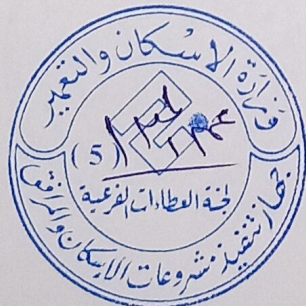 وزارة الإسكان والتعمير
(5)
لجنة العطاءات الفرعية
جهاز تنفيذ مشروعات الإسكان والمرافق